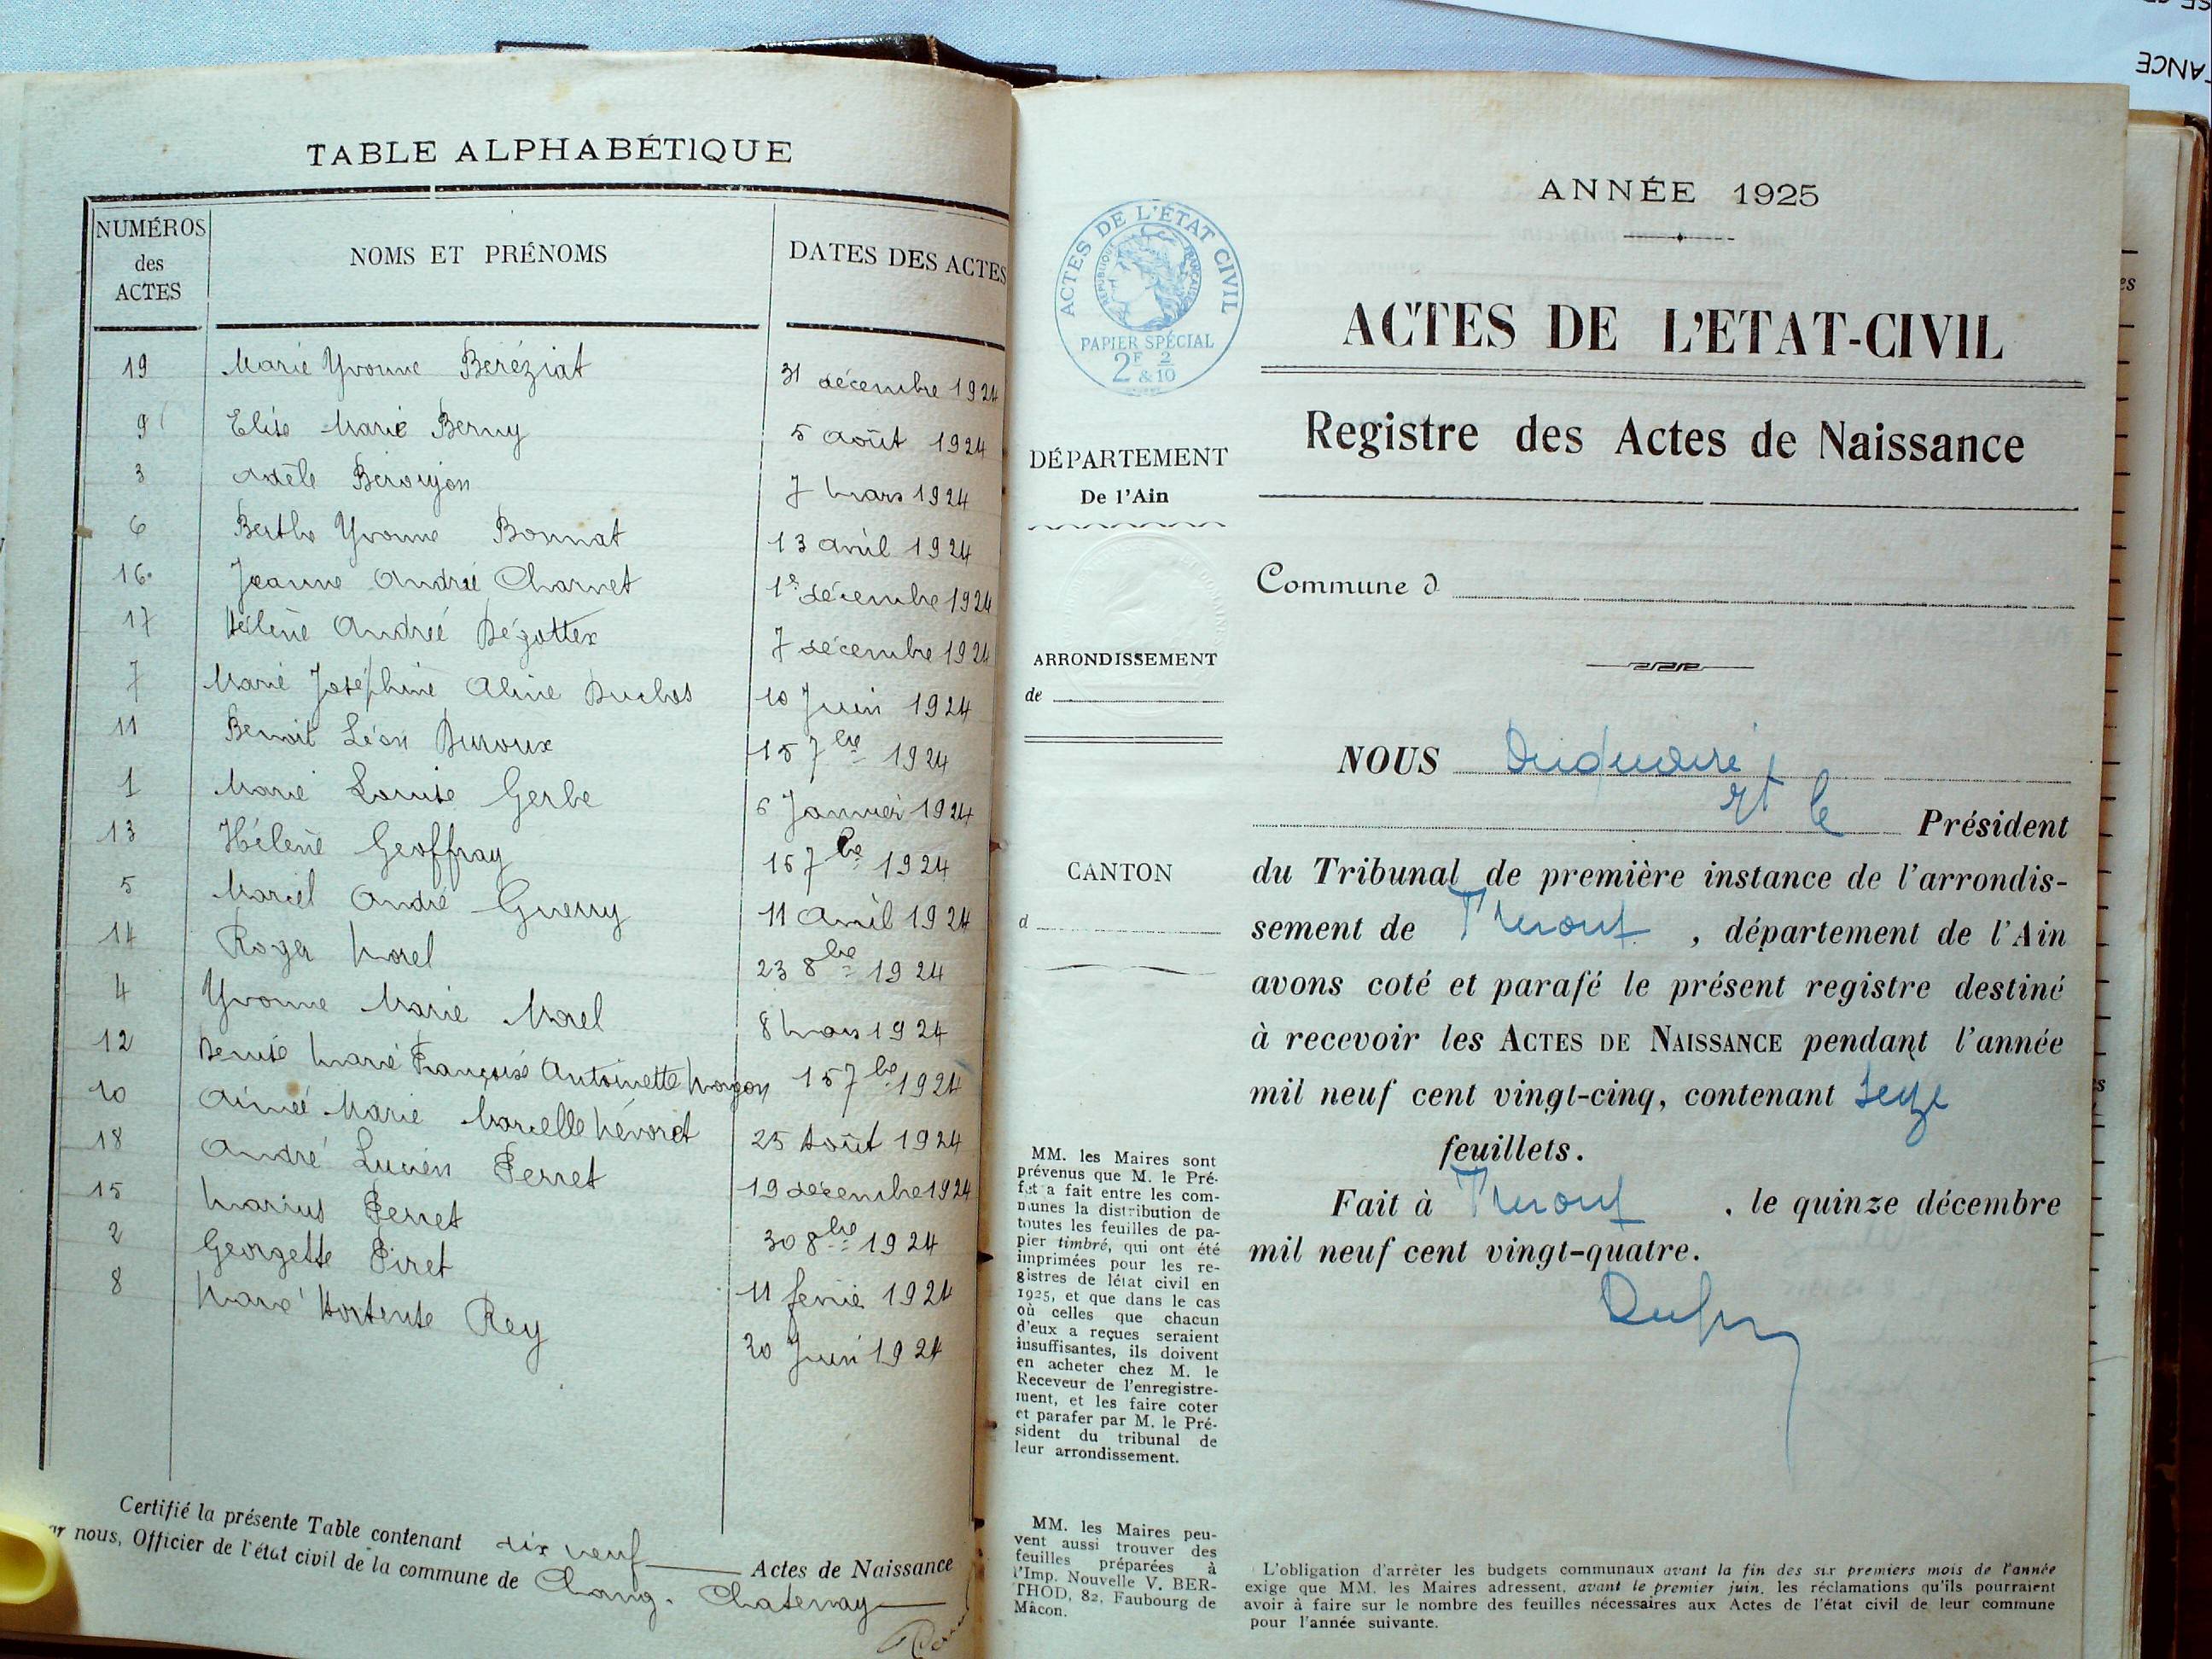 TABLE ALPHABÉTIQUE
NUMÉROS des ACTES NOMS ET PRÉNOMS DATES DES ACTES
19 Marie Yvonne Beréziat 31 décembre 1924
9 Elise Marie Berny 5 août 1924
3 Adèle Béroujon 7 mars 1924
6 Berthe Yvonne Bonnat 13 avril 1924
16 Jeanne Andrée Charvet 1er décembre 1924
17 Hélène Andrée Dégottex 7 décembre 1924
7 Marie Joséphine Aline Duclos 10 Juin 1924
11 Benoit Léon Duroux 15 7bre 1924
1 Marie Louise Gerbe 6 Janvier 1924
13 Hélène Geoffray 16 7bre 1924
5 Marcel André Guerry 11 avril 1924
14 Roger Morel 23 8bre 1924
4 Yvonne Marie Morel 8 mars 1924
12 Denise Marie Françoise Antoinette Morgon 15 7bre 1924
10 Aimée Marie Marcelle Névoret 25 août 1924
18 André Lucien Perret 19 décembre 1924
15 Marius Perret 30 8bre 1924
2 Georgette Piret 11 fevrie 1924
8 Marie Hortense Rey 20 Juin 1924
Certifié la présente Table contenant dix neuf Actes de Naissance
ar nous, Officier de l'état civil de la commune de Chang. Chatenay
ANCE
ANNÉE 1925
ACTES DE L'ÉTAT CIVIL
RÉPUBLIQUE FRANÇAISE
PAPIER SPÉCIAL
2F 2/10
& 
ACTES DE L'ETAT-CIVIL
Registre des Actes de Naissance
DÉPARTEMENT
De l'Ain
Commune d
ARRONDISSEMENT
de
NOUS
et le Président
CANTON
d
du Tribunal de première instance de l'arrondis-
sement de Trevoux, département de l'Ain
avons coté et parafé le présent registre destiné
à recevoir les ACTES DE NAISSANCE pendant l'année
mil neuf cent vingt-cinq, contenant Seize
feuillets.
Fait à Trevoux, le quinze décembre
mil neuf cent vingt-quatre.
MM. les Maires sont
prévenus que M. le Pré-
fet a fait entre les com-
munes la distribution de
toutes les feuilles de pa-
pier timbré, qui ont été
imprimées pour les re-
gistres de létat civil en
1925, et que dans le cas
où celles que chacun
d'eux a reçues seraient
insuffisantes, ils doivent
en acheter chez M. le
Receveur de l'enregistre-
ment, et les faire coter
et parafer par M. le Pré-
sident du tribunal de
leur arrondissement.
MM. les Maires peu-
vent aussi trouver des
feuilles préparées à
l'Imp. Nouvelle V. BER-
THOD, 82, Faubourg de
Mâcon.
L'obligation d'arrêter les budgets communaux avant la fin des six premiers mois de l'année
exige que MM. les Maires adressent, avant le premier juin, les réclamations qu'ils pourraient
avoir à faire sur le nombre des feuilles nécessaires aux Actes de l'état civil de leur commune
pour l'année suivante.